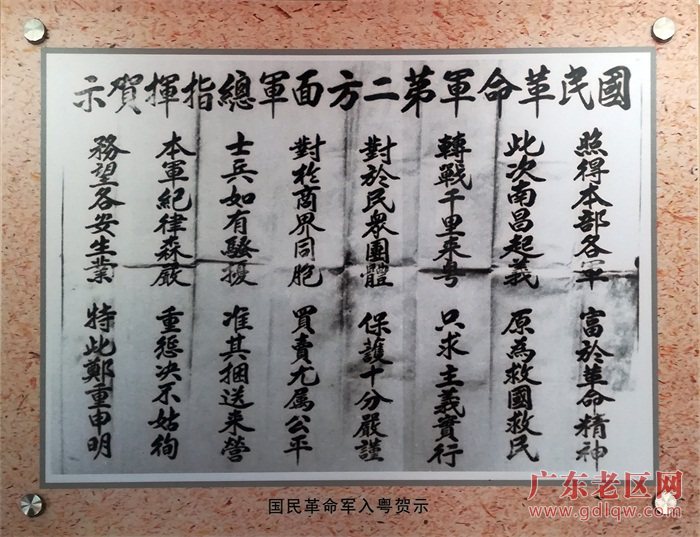 國民革命軍第二方面軍總指揮賀示
照得本部各軍 富於革命精神
此次南昌起義 原為救國救民
轉戰千里來粵 只求主義實行
對於民衆團體 保護十分嚴謹
對於商界同胞 買賣尤属公平
士兵如有騷擾 准其捆送来營
本軍紀律森嚴 重惩决不姑徇
務望各安生業 特此鄭重申明
国民革命军入粤贺示
广东老区网
www.gdlqw.com